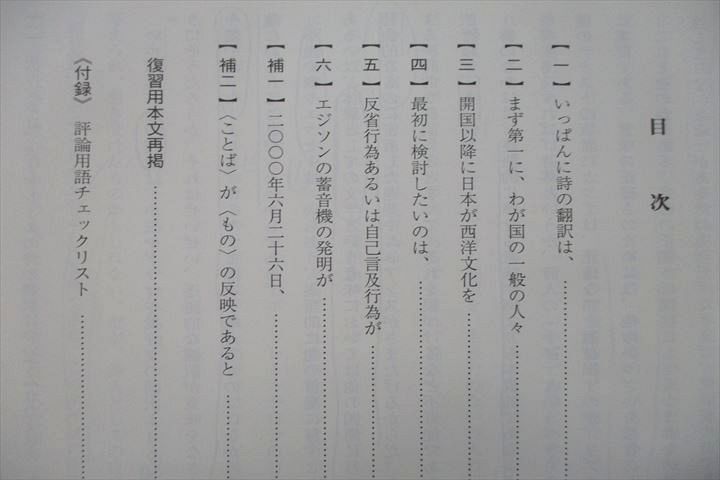 目次
【一】いっぱんに詩の翻訳は、…………
【二】まず第一に、わが国の一般の人々…………
【三】開国以降に日本が西洋文化を…………
【四】最初に検討したいのは、…………
【五】反省行為あるいは自己言及行為が…………
【六】エジソンの蓄音機の発明が…………
【補一】二〇〇〇年六月二十六日、…………
【補二】〈ことば〉が〈もの〉の反映であると…………
復習用本文再掲…………
《付録》評論用語チェックリスト…………